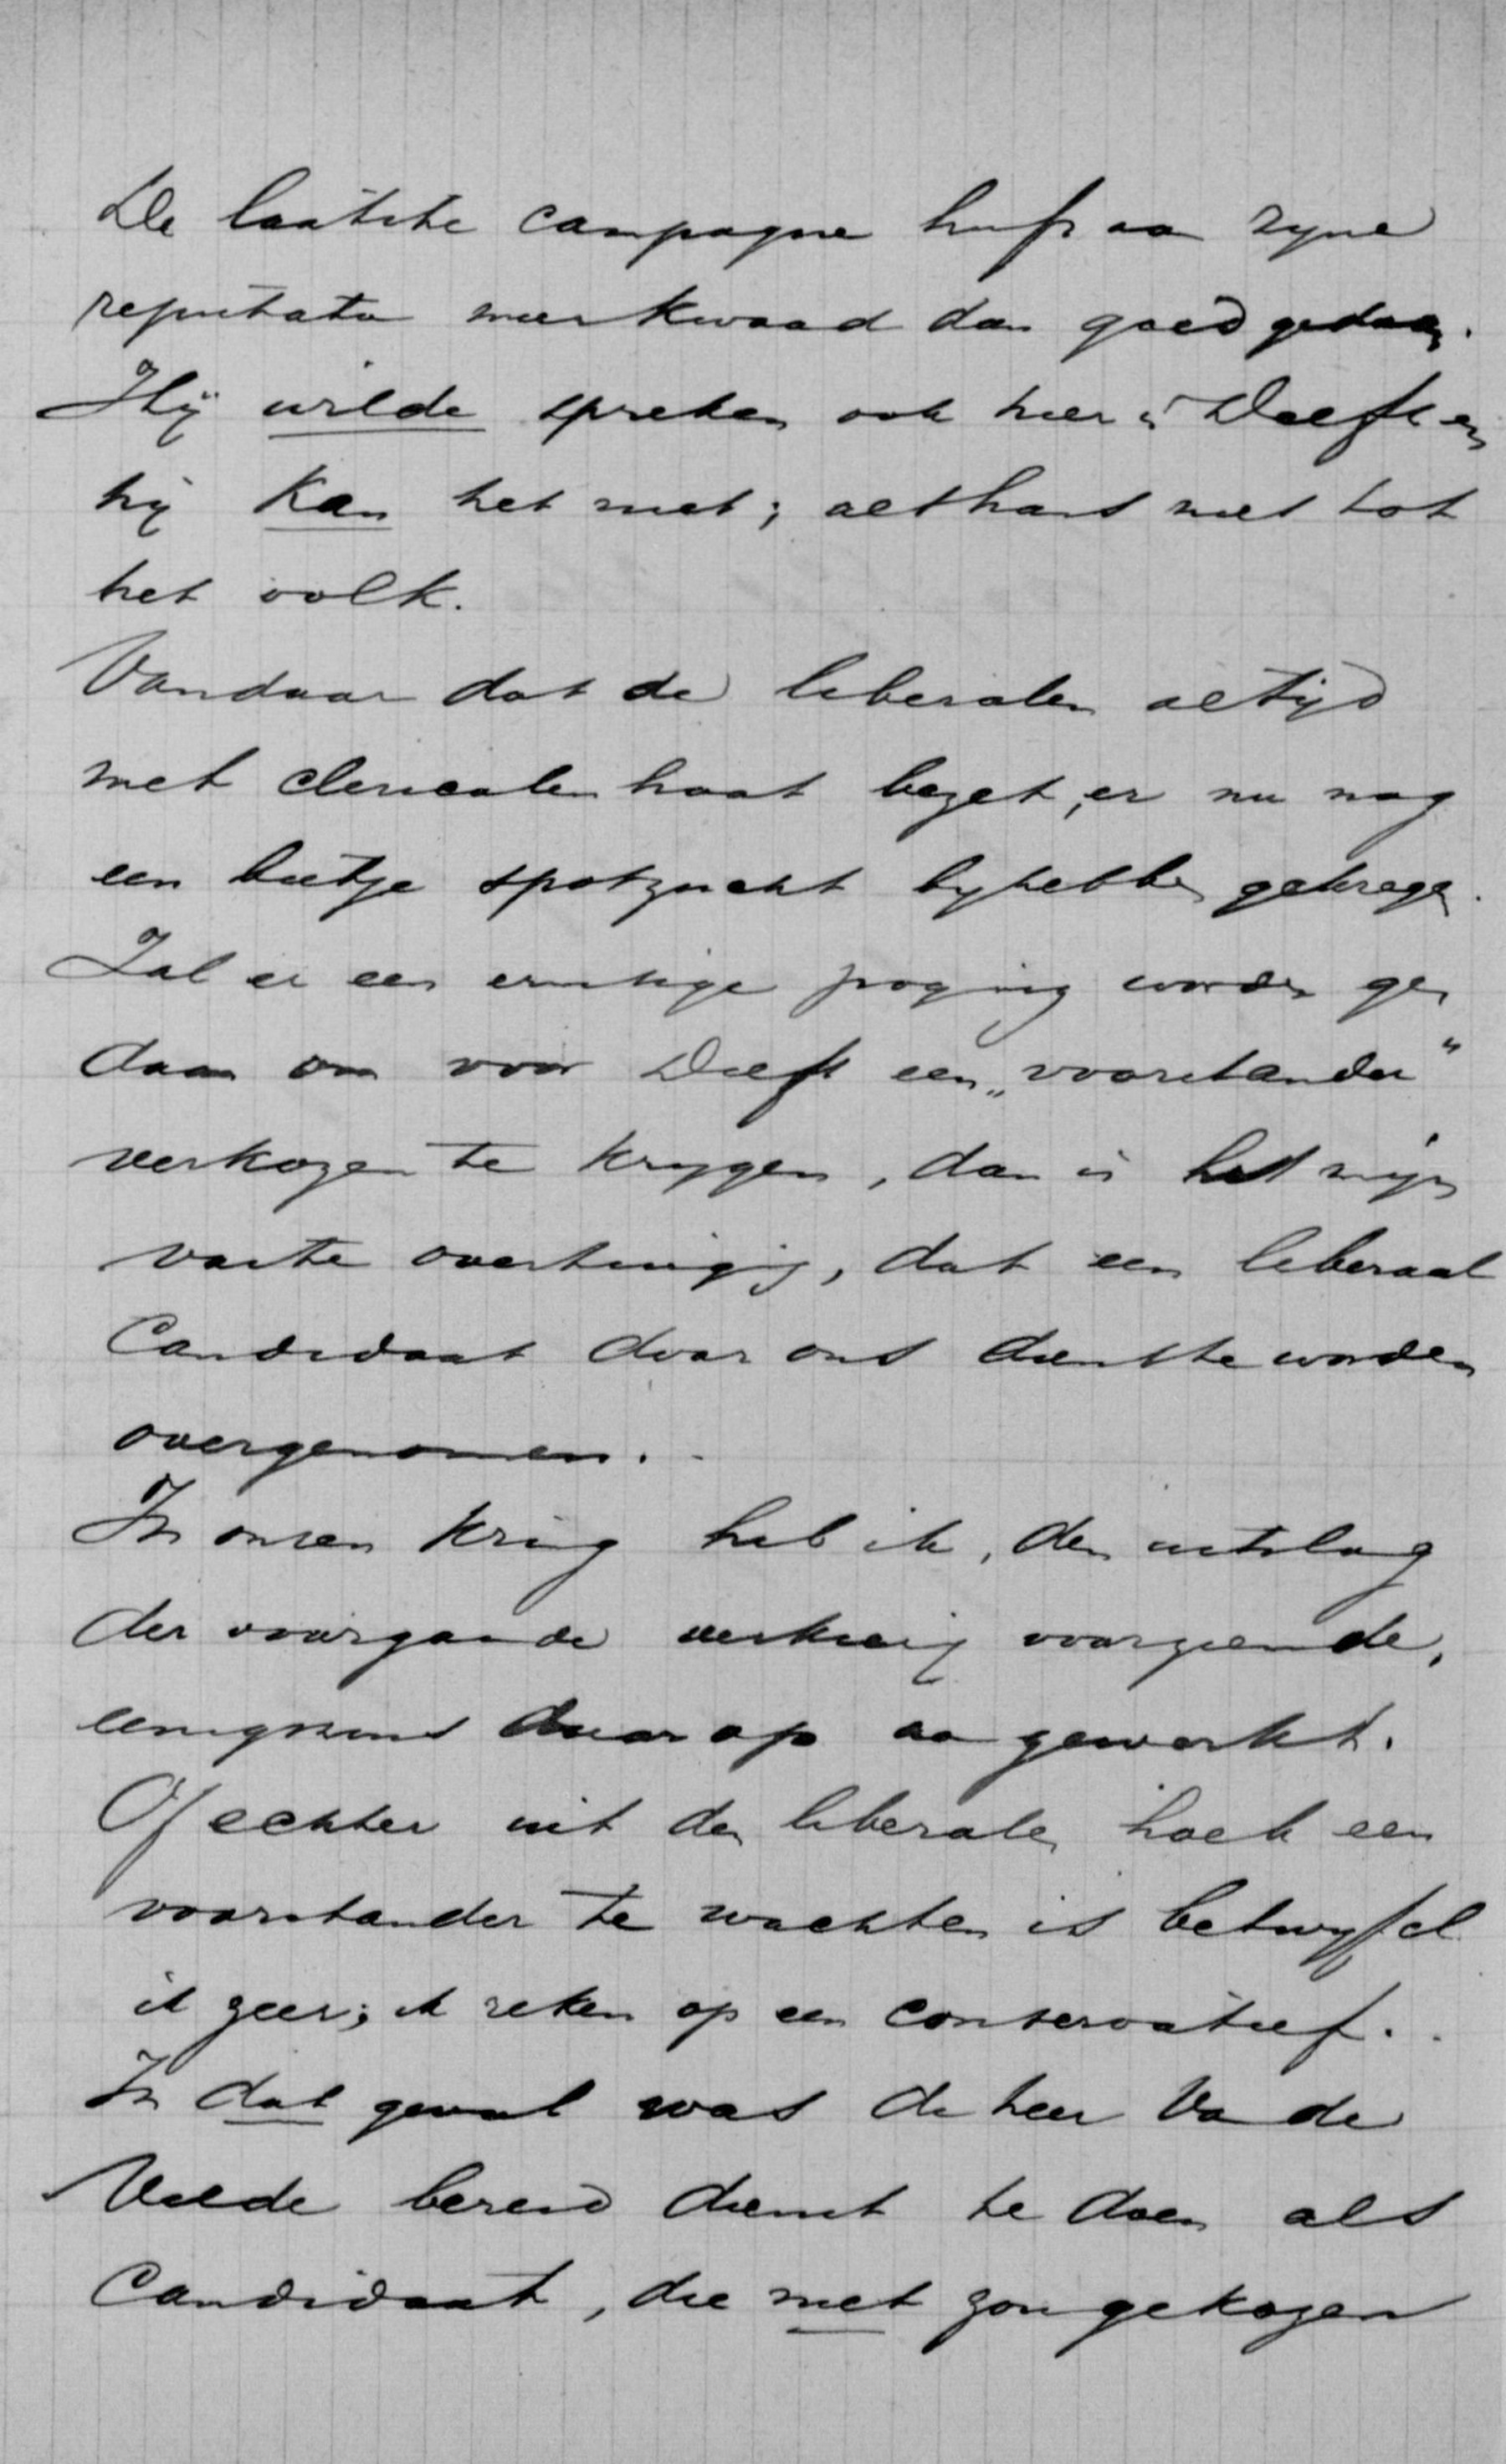 De laatste campagne heeft aan zyne
reputatie meer kwaad dan goed gedaan.
Hij wilde spreken ook hier in Delft en
hij kan het niet; althans niet tot
het volk.
Vandaar dat de liberalen altijd
met clericalen haat bezet, er nu nog
een beetje spotzucht byhebben gekregen.
Zal er een ernstige poging worden ge
daan om voor Delft een „voorstander"
verkozen te krygen, dan is het mijn
vaste overtuiging, dat een liberaal
Candidaat door ons dient te worden
overgenomen.
In onzen kring heb ik, den uitslag
der voorgaande verkiezing voorziende,
eenigszins daarop aangewerkt.
Of echter uit den liberalen hoek een
voorstander te wachten is betwyfel
ik zeer; ik reken op een conservatief.
In dat geval was de heer Van de
Velde bereid dienst te doen als
Candidaat, die niet zou gekozen